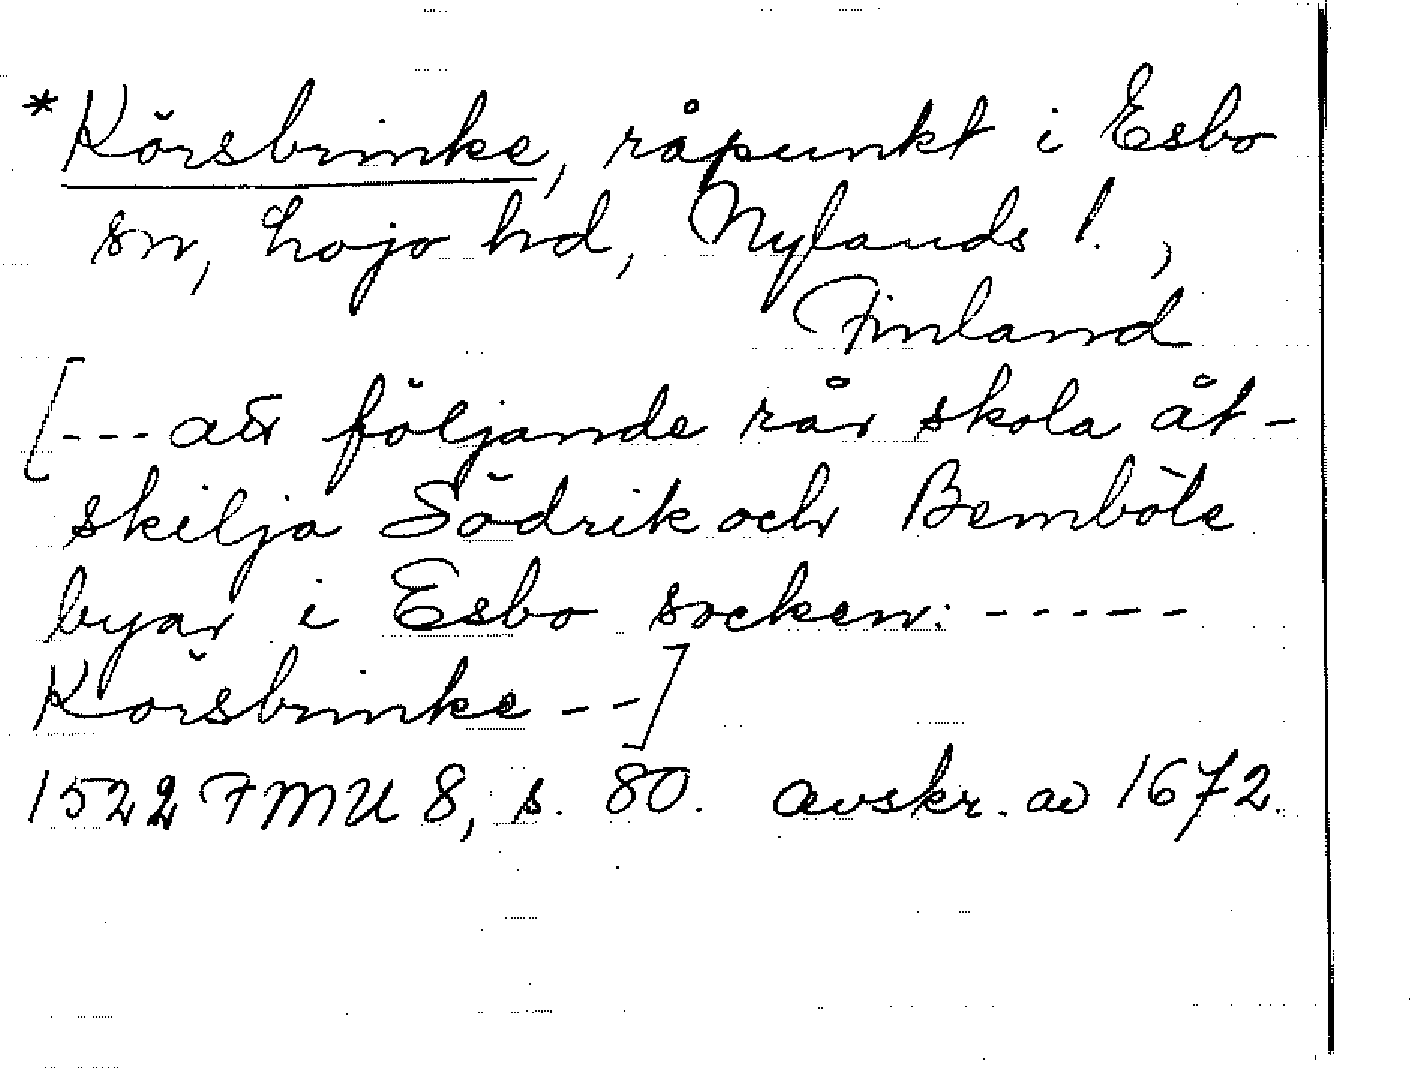 *Körsbrinke, råpunkt i Esbo
sn, Lojo hd, Nylands l.,
Finland
[--- att följande rår skola åt-
skilja Södrik och Bemböle
byar i Esbo socken: -----
Körsbrinke --]
1522 FMU 8, s. 80. avskr. av 1672.